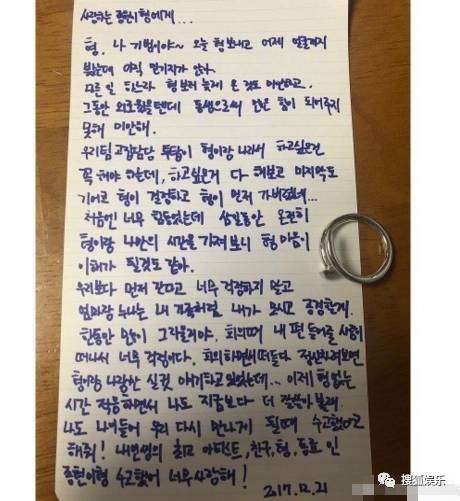 사랑하는 종현이형에게...
형, 나 기범이야~ 오늘 형보내고 어제 얼굴까지
봤는데 아직 믿기지가 않아.
다른 일 하느라 형 보러 늦게 온 것도 미안하고,
그동안 외로웠을텐데 동생으로써 만은 힘이 되어주지
못해 미안해.
우리팀 고집담당 투탑이 형이랑 나라서 하고싶은건
꼭 해야 하는데, 하고싶은거 다 해보고 마지막도
기어코 형이 결정하고 형이 먼저 가버렸네...
처음엔 너무 힘들었는데 삼일동안 온전히
형이랑 나만의 시간을 가져 보니 형 마음이
이해가 될것도 같아.
우리보다 먼저 간다고 너무 걱정하지 말고
엄마랑 누나는 내 가족처럼 내가 모시고 공경할게.
한동안 많이 그리울거야. 회의때 내 편 들어줄 사람이
떠나서 너무 걱정이다. 회의하면서 떠들다 정신차려보면
형이랑 나랑만 실컷 얘기하고 있었는데... 이제 형 없는
시간 적응하면서 나도 지금보다 더 잘살아 볼래.
나도 나이들어 우리 다시 만나게 될때 수고했다고
해줘! 내인생의 최고 아티스트, 친구, 형, 동료 인
종현이형 수고했어 너무사랑해!
2017.12.21
搜狐娱乐